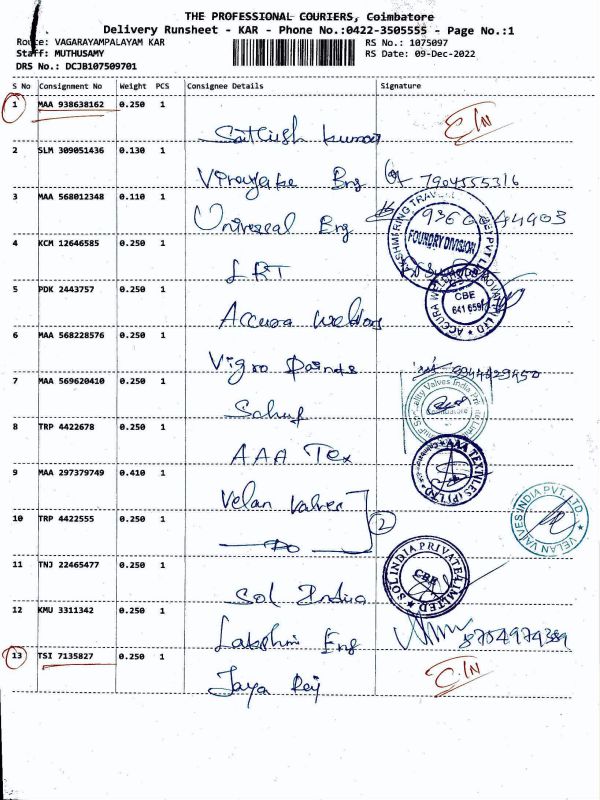 THE PROFESSIONAL COURIERS, Coimbatore
Delivery Runsheet - KAR - Phone No.:0422-3505555 - Page No.:1
Route: VAGARAYAMPALAYAM KAR RS No.: 1075097
Staff: MUTHUSAMY RS Date: 09-Dec-2022
DRS No.: DCJB107509701
S No Consignment No Weight PCS Consignee Details Signature
1 MAA 938638162 0.250 1
Sathish Kumar
2 SLM 309051436 0.130 1
Eng 7904555316
3 MAA 568012348 0.110 1
Universal Eng
FOUNDRY DIVISION
4 KCM 12646585 0.250 1
LRT
5 PDK 2443757 0.250 1
Accura
CBE
641 659
6 MAA 568228576 0.250 1
Vigro
7 MAA 569620410 0.250 1
8 TRP 4422678 0.250 1
AAA Tex
AAA TEXTILES (P) LTD
9 MAA 297379749 0.410 1
Velan Valves
VELAN VALVES INDIA PVT. LTD.
10 TRP 4422555 0.250 1
Do 2
11 TNJ 22465477 0.250 1
Sol India
SOL INDIA PRIVATE LIMITED
CBE
12 KMU 3311342 0.250 1
Lakshmi Eng 8754974389
13 TSI 7135827 0.250 1
Jaya